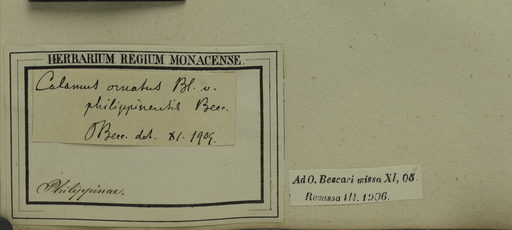 HERBARIUM REGIUM MONACENSE.
Calamus ornatus Bl. v.
philippinensis Becc.
OBecc. det. XI. 1905.
Philippinae.
Ad O. Beccari missa XI, 05.
Recussa III. 1906.